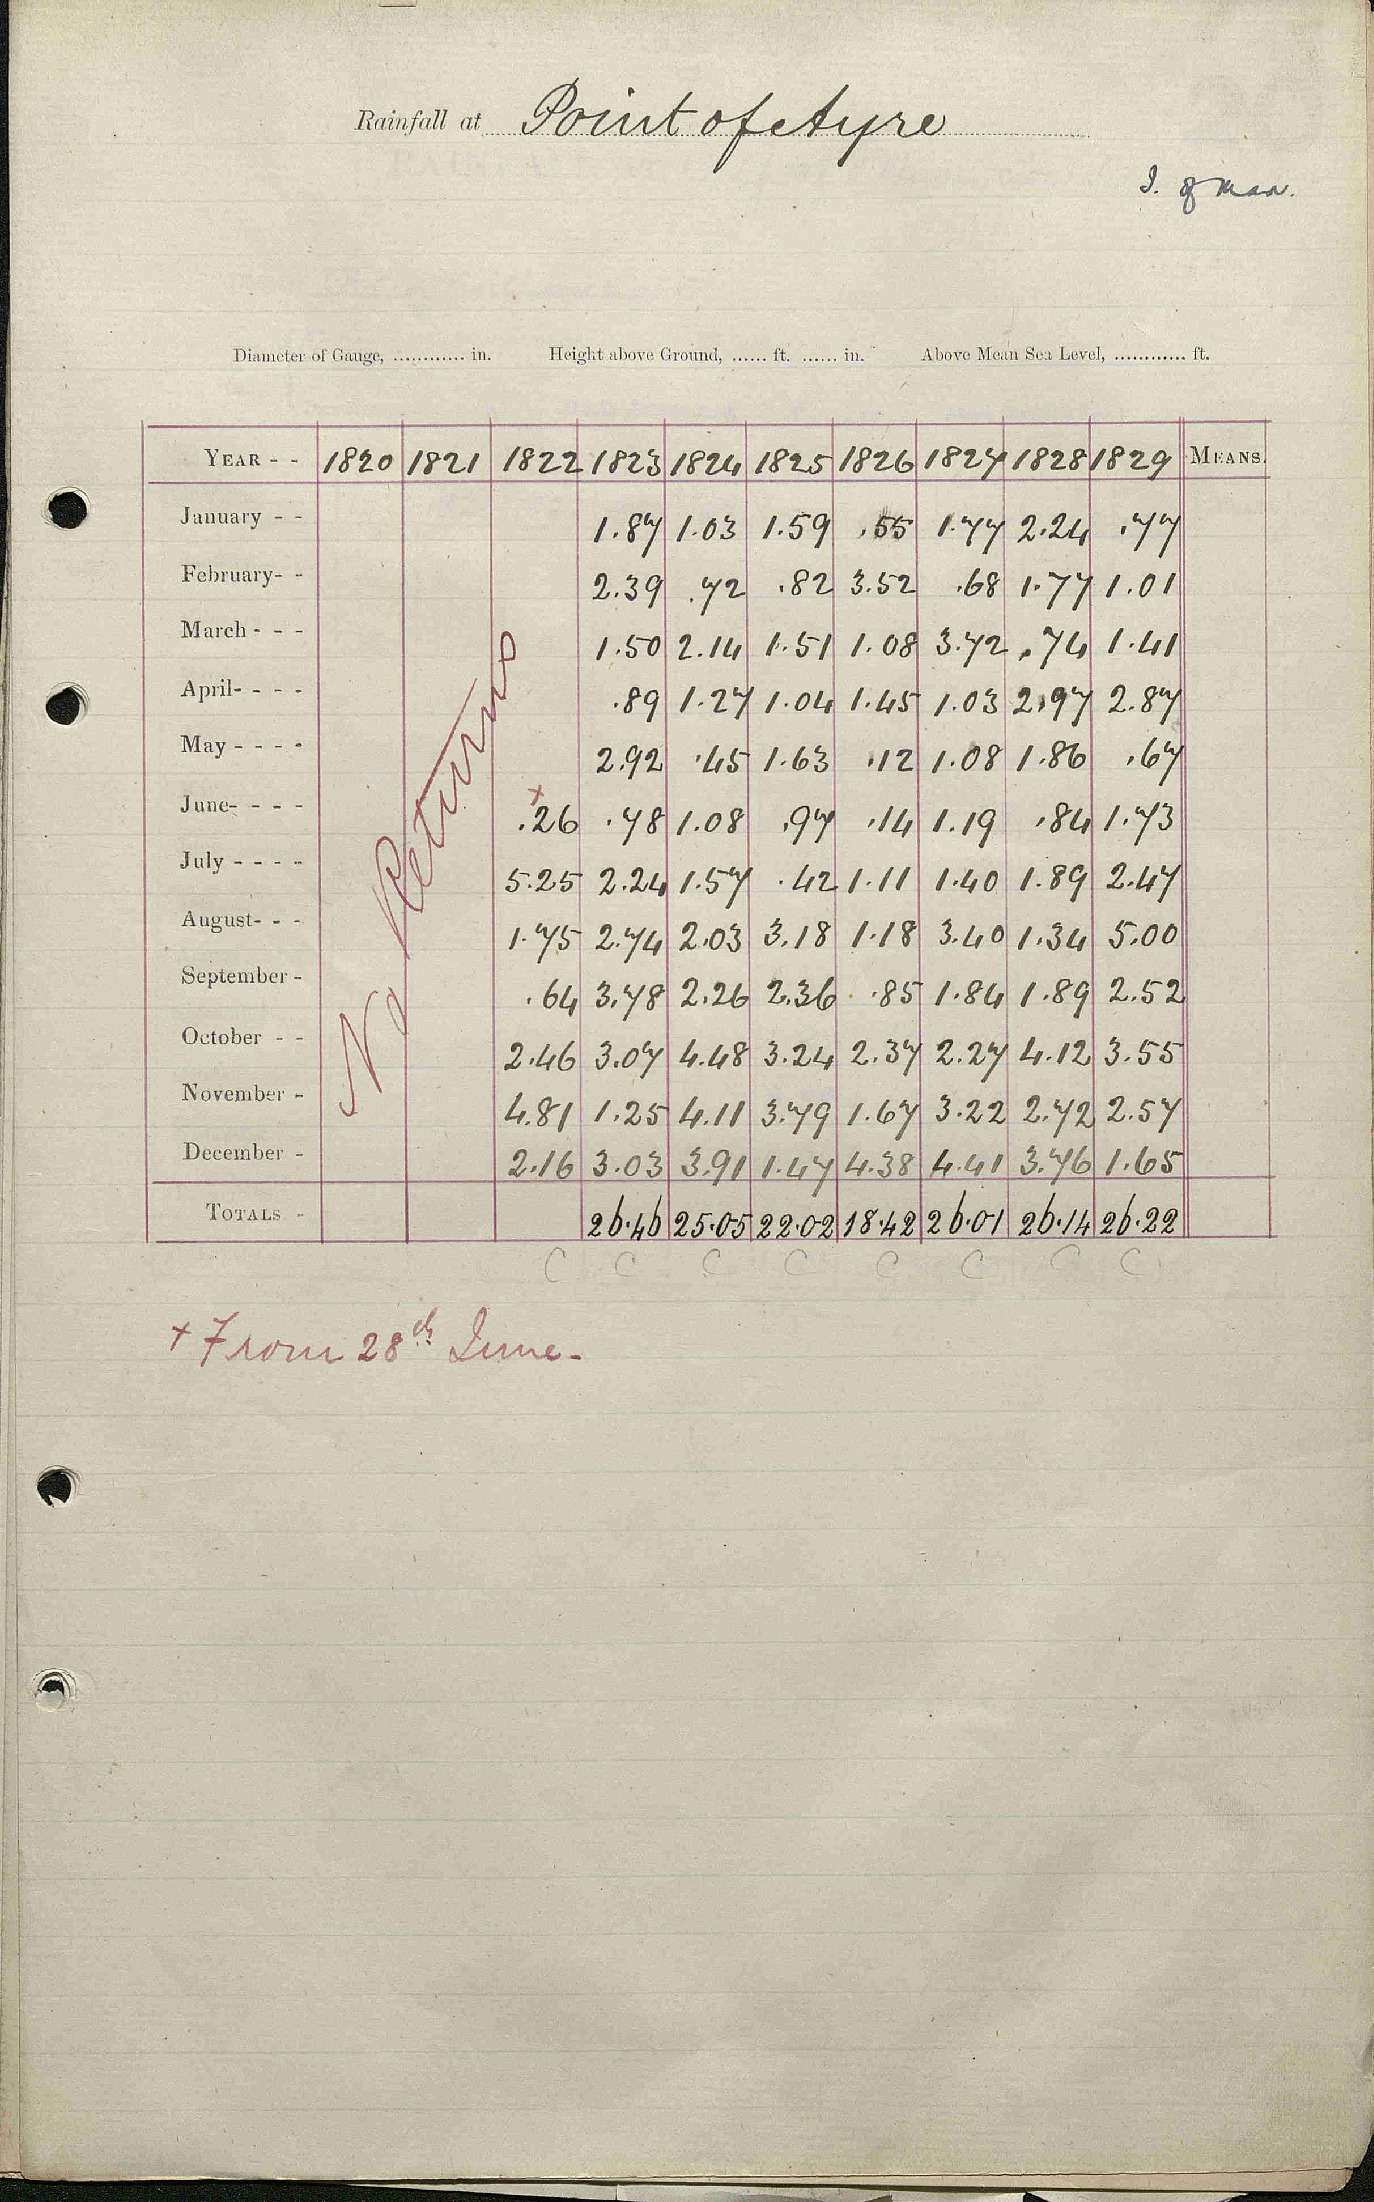 Rainfall at Point of Ayre
I. of Man.
Diameter of Gauge, ............ in. Height above Ground, ...... ft. ...... in. Above Mean Sea Level, ............ ft.
YEAR - - 1820 1821 1822 1823 1824 1825 1826 1827 1828 1829 MEANS.
January - - 1.87 1.03 1.59 .55 1.77 2.24 .77
February- - 2.39 .72 .82 3.52 .68 1.77 1.01
March - - - 1.50 2.14 1.51 1.08 3.72 .74 1.41
April- - - - .89 1.27 1.04 1.45 1.03 2.97 2.87
May - - - - 2.92 .45 1.63 .12 1.08 1.86 .67
June- - - - +.26 .78 1.08 .97 .14 1.19 .84 1.73
July - - - - 5.25 2.24 1.57 .42 1.11 1.40 1.89 2.47
August- - - 1.75 2.74 2.03 3.18 1.18 3.40 1.34 5.00
September - .64 3.78 2.26 2.36 .85 1.84 1.89 2.52
October - - 2.46 3.07 4.48 3.24 2.37 2.27 4.12 3.55
November - 4.81 1.25 4.11 3.79 1.67 3.22 2.72 2.57
December - 2.16 3.03 3.91 1.47 4.38 4.41 3.76 1.65
TOTALS - 26.46 25.05 22.02 18.42 26.01 26.14 26.22
C C C C C C C C
No Returns
+ From 28th June.